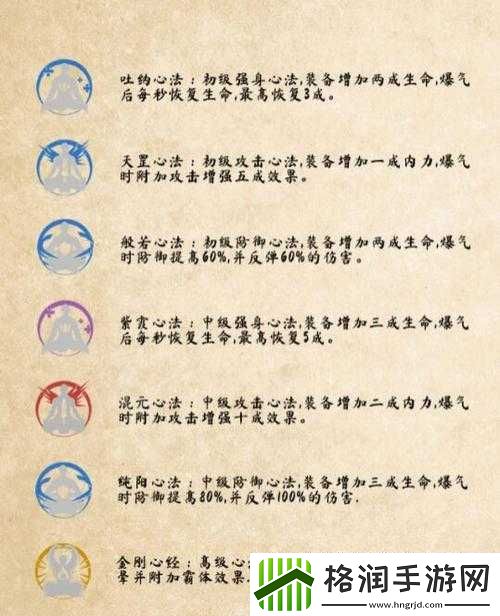 吐纳心法：初级强身心法,装备增加两成生命,爆气
后每秒恢复生命,最高恢复3成。
天罡心法：初级攻击心法,装备增加一成内力,爆气
时附加攻击增强五成效果。
般若心法：初级防御心法,装备增加两成生命,爆气
时防御提高60%,并反弹60%的伤害。
紫霞心法：中级强身心法,装备增加三成生命,爆气
后每秒恢复生命,最高恢复5成。
混元心法：中级攻击心法,装备增加二成内力,爆气
时附加攻击增强十成效果。
纯阳心法：中级防御心法,装备增加三成生命,爆气
时防御提高80%,并反弹100%的伤害.
金刚心经：高级心
晕并附加霸体效果
格润手游网
www.hngrjd.com